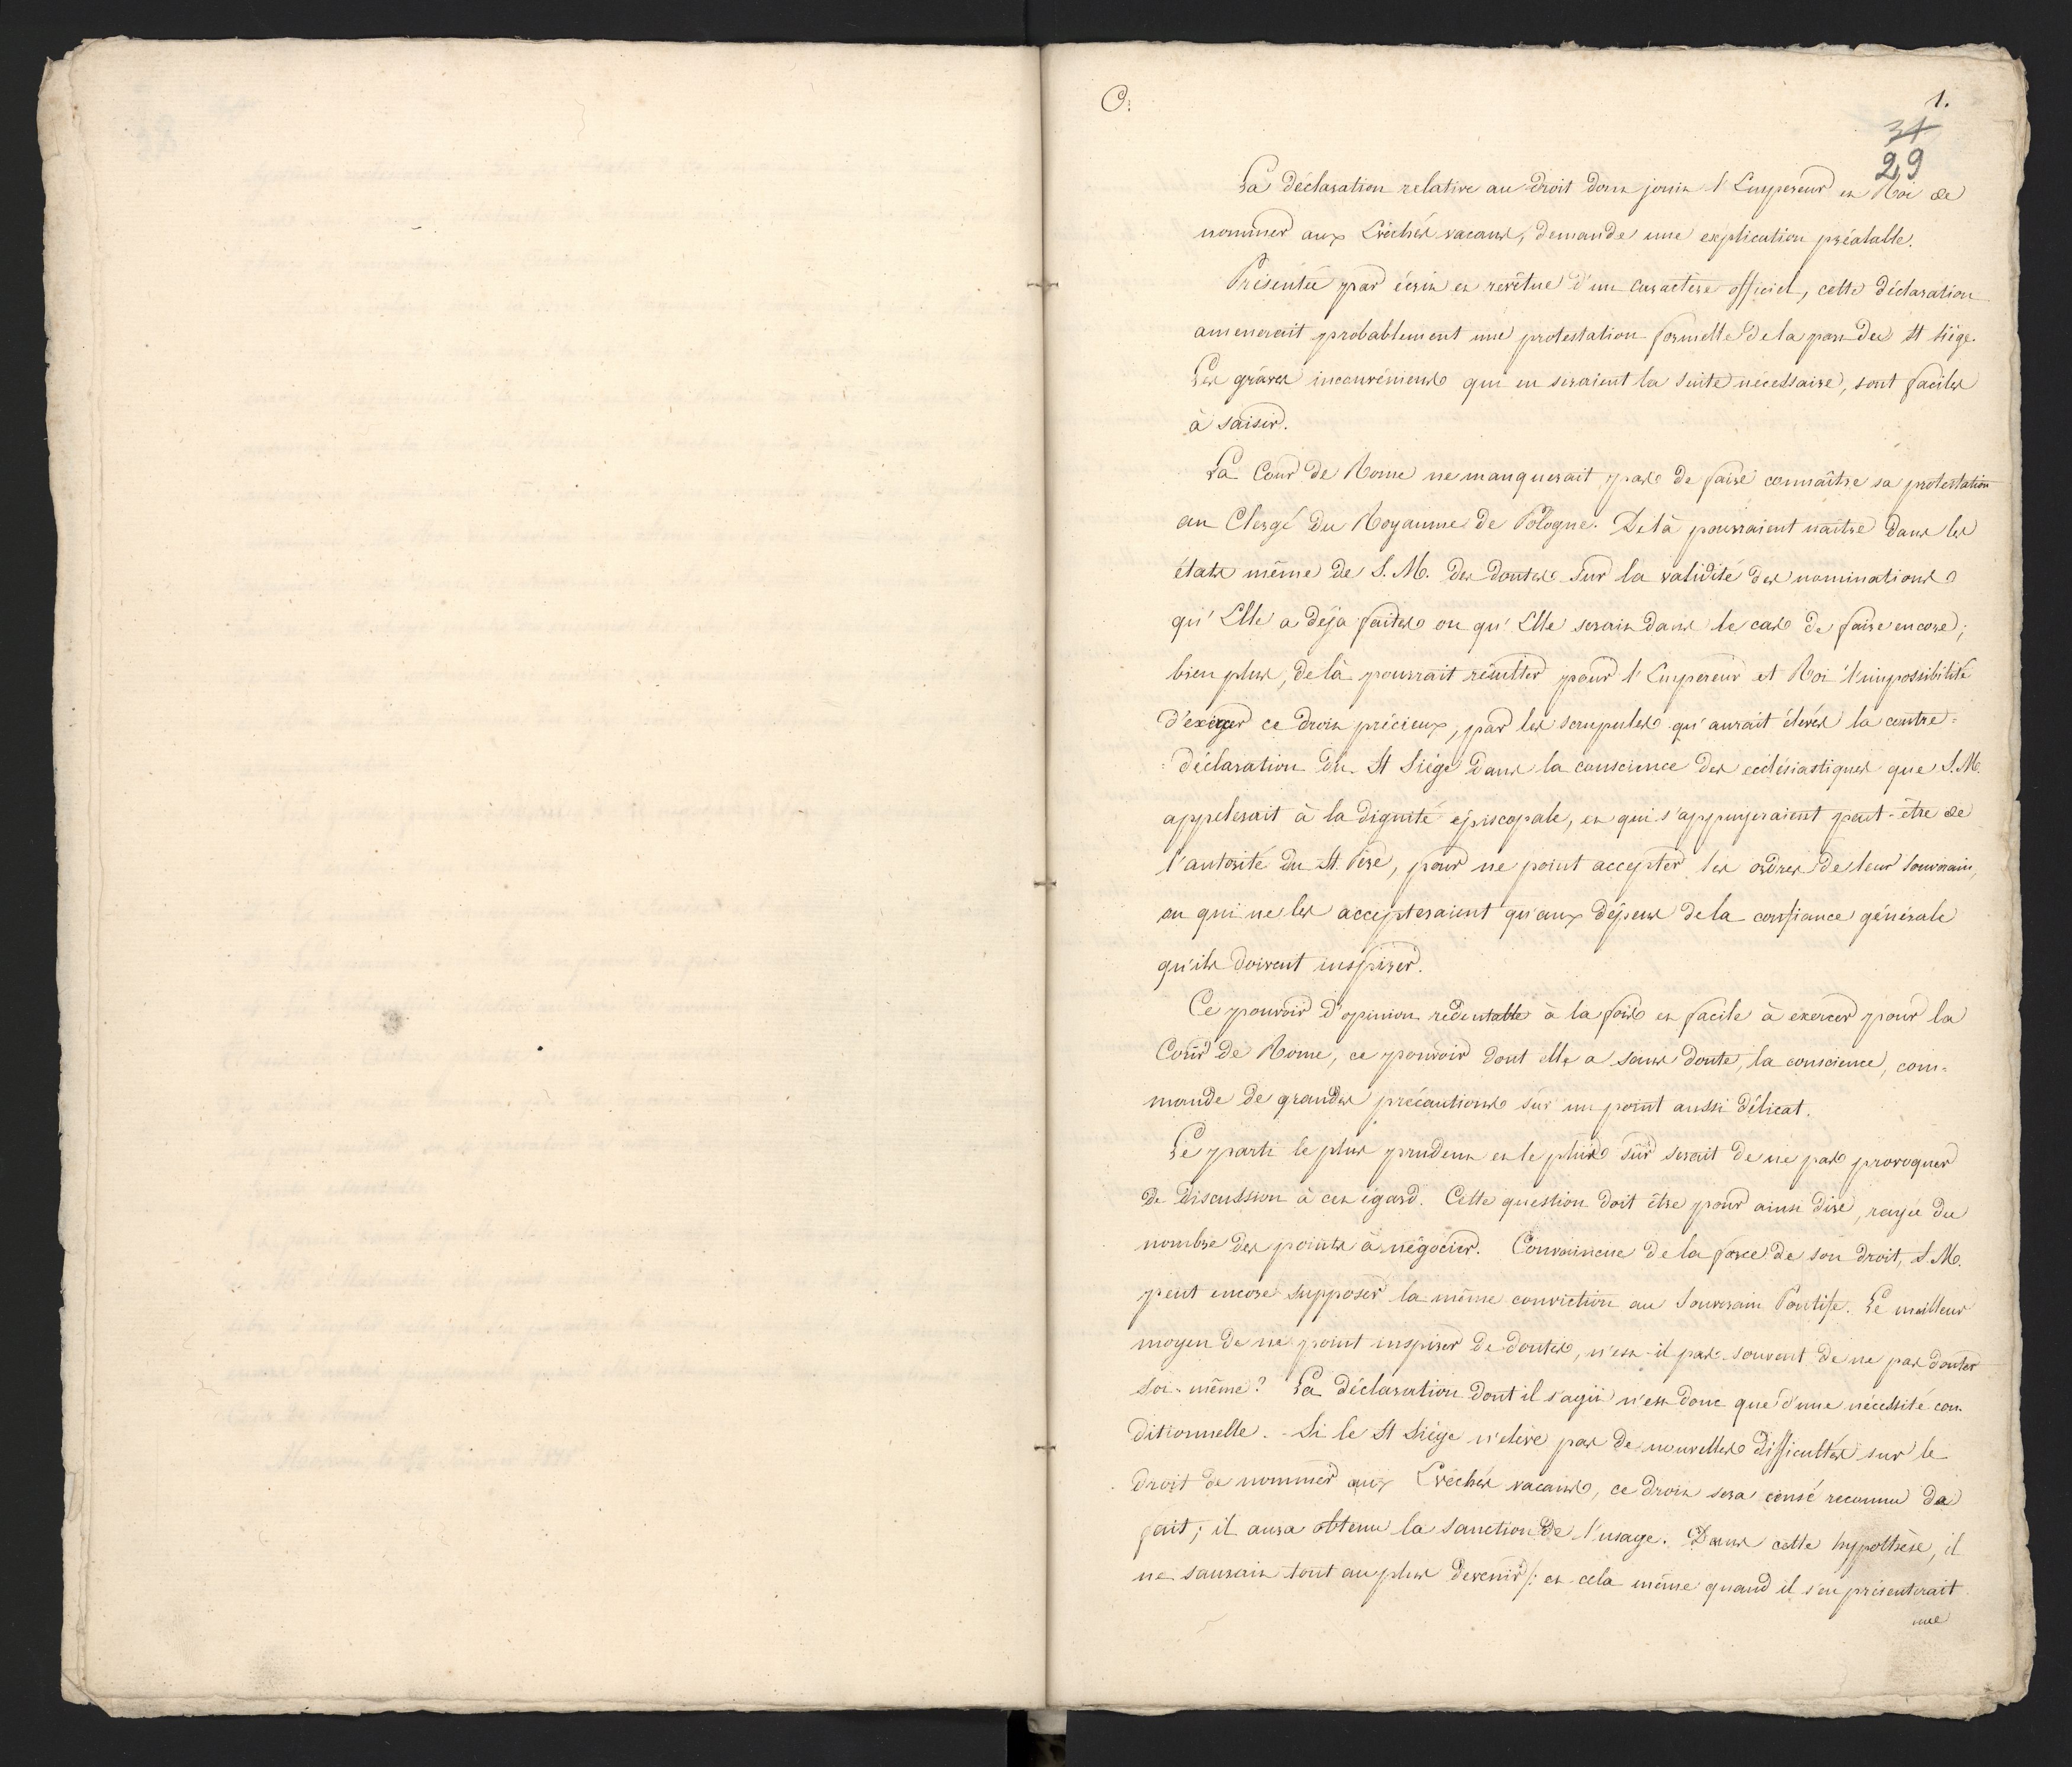 O:
1.
31
29
La déclaration relative au droit dont jouit l'Empereur et Roi de
nommer aux Evêchés vacans, demande une explication préalable.
Présentée par écrit et revêtue d'un caractère officiel, cette déclaration
amenerait probablement une protestation formelle de la part du St Siége.
Les graves inconvéniens qui en seraient la suite nécessaire, sont faciles
à saisir.
La Cour de Rome ne manquerait pas de faire connaître sa protestation
au Clergé du Royaume de Pologne. Delà pourraient naître dans les
états même de S. M. des doutes sur la validité des nominations
qu'Elle a déja faites ou qu'Elle serait dans le cas de faire encore;
bien plus, delà pourrait résulter pour l'Empereur et Roi l'impossibilité
d'exercer ce droit précieux, par les scrupules qu'aurait élevés la contre=
=déclaration du St Siége dans la conscience des ecclésiastiques que S. M.
appelerait à la dignité épiscopale, et qui s'appuyeraient peut-être de
l'autorité du St. Père, pour ne point accepter les ordres de leur Souverain,
ou qui ne les accepteraient qu'aux dépens de la confiance générale
qu'ils doivent inspirer.
Ce pouvoir d'opinion redoutable à la fois et facile à exercer pour la
Cour de Rome, ce pouvoir dont elle a sans doute, la conscience, com=
mande de grandes précautions sur un point aussi délicat.
Le parti le plus prudent et le plus sûr serait de ne pas provoquer
de discussion à cet égard. Cette question doit être pour ainsi dire, rayée du
nombre des points à négocier. Convaincue de la force de son droit, S. M.
peut encore supposer la même conviction au Souverain Pontife. Le meilleur
moyen de ne point inspirer de doutes, n'est-il pas souvent de ne pas douter
soi-même? La déclaration dont il s'agit n'est donc que d'une nécessité con-
ditionnelle. - Si le St Siége n'élève pas de nouvelles difficultés sur le
droit de nommer aux Evêchés vacans, ce droit sera censé reconnu de
fait; il aura obtenu la sanction de l'usage. Dans cette hypothèse, il
ne saurait tout au plus devenir /: et cela même quand il s'en présenterait
une